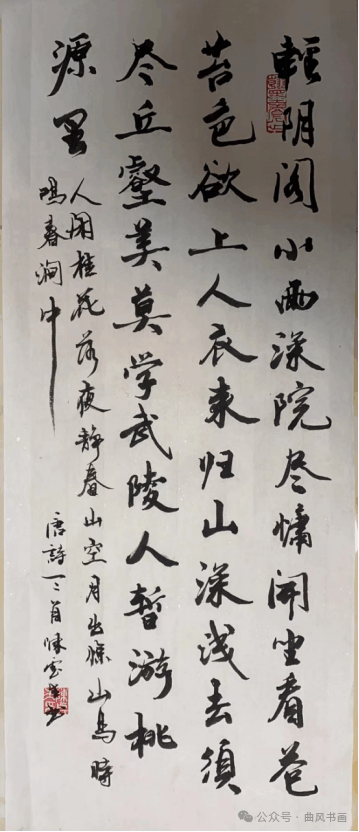 輕阴阁小雨深院尽慵開坐看苍
苔色欲上人衣来归山深浅去须
尽丘壑美莫学武陵人暂游桃
源里
人闲桂花落夜静春山空月出惊山鸟时
鸣春涧中
唐詩三首
公众号·曲风书画